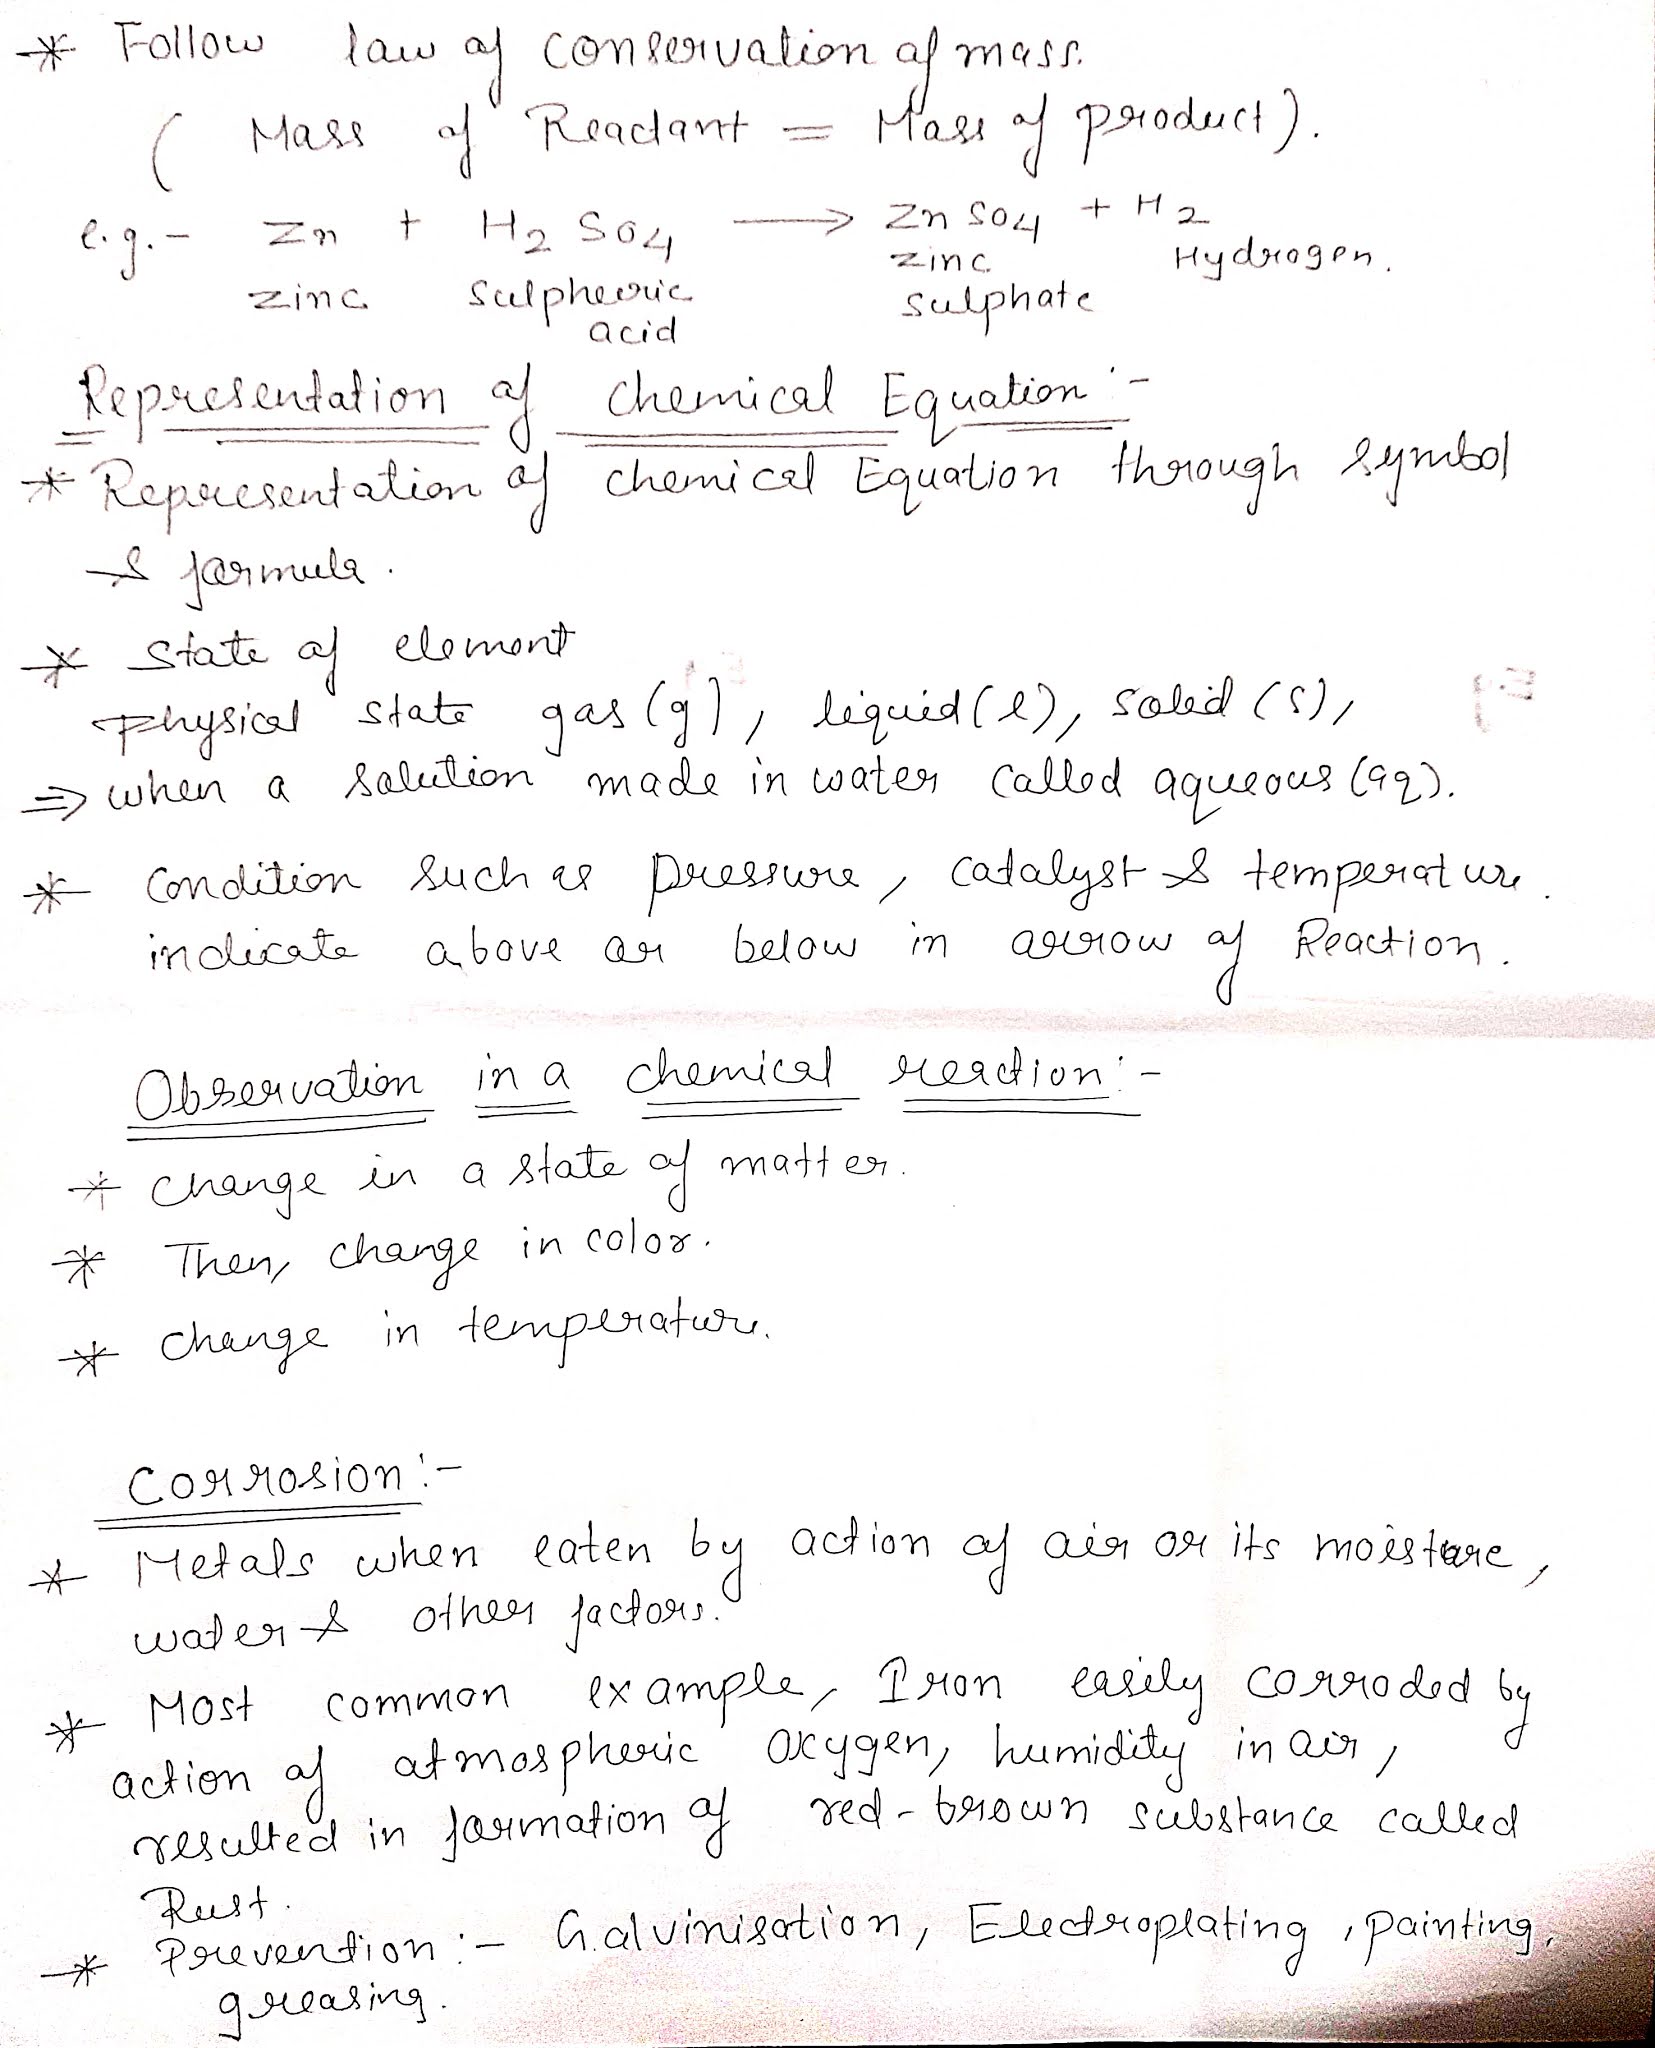 * Follow law of conservation of mass.
( Mass of Reactant = Mass of product).
e.g.- Zn + H2 SO4 ⟶ Zn SO4 + H2
zinc sulphuric acid zinc sulphate Hydrogen.
Representation of chemical Equation :-
* Representation of chemical Equation through symbol
& formula.
* State of element
physical state gas (g), liquid (l), solid (s),
⇒ when a solution made in water called aqueous (aq).
* Condition such as pressure, catalyst & temperature.
indicate above or below in arrow of Reaction.
Observation in a chemical reaction :-
* change in a state of matter.
* Then, change in color.
* change in temperature.
Corrosion :-
* Metals when eaten by action of air or its moisture,
water & other factors.
* Most common example, Iron easily corroded by
action of atmospheric oxygen, humidity in air,
resulted in formation of red-brown substance called
Rust.
* Prevention :- Galvinisation, Electroplating, painting,
greasing.